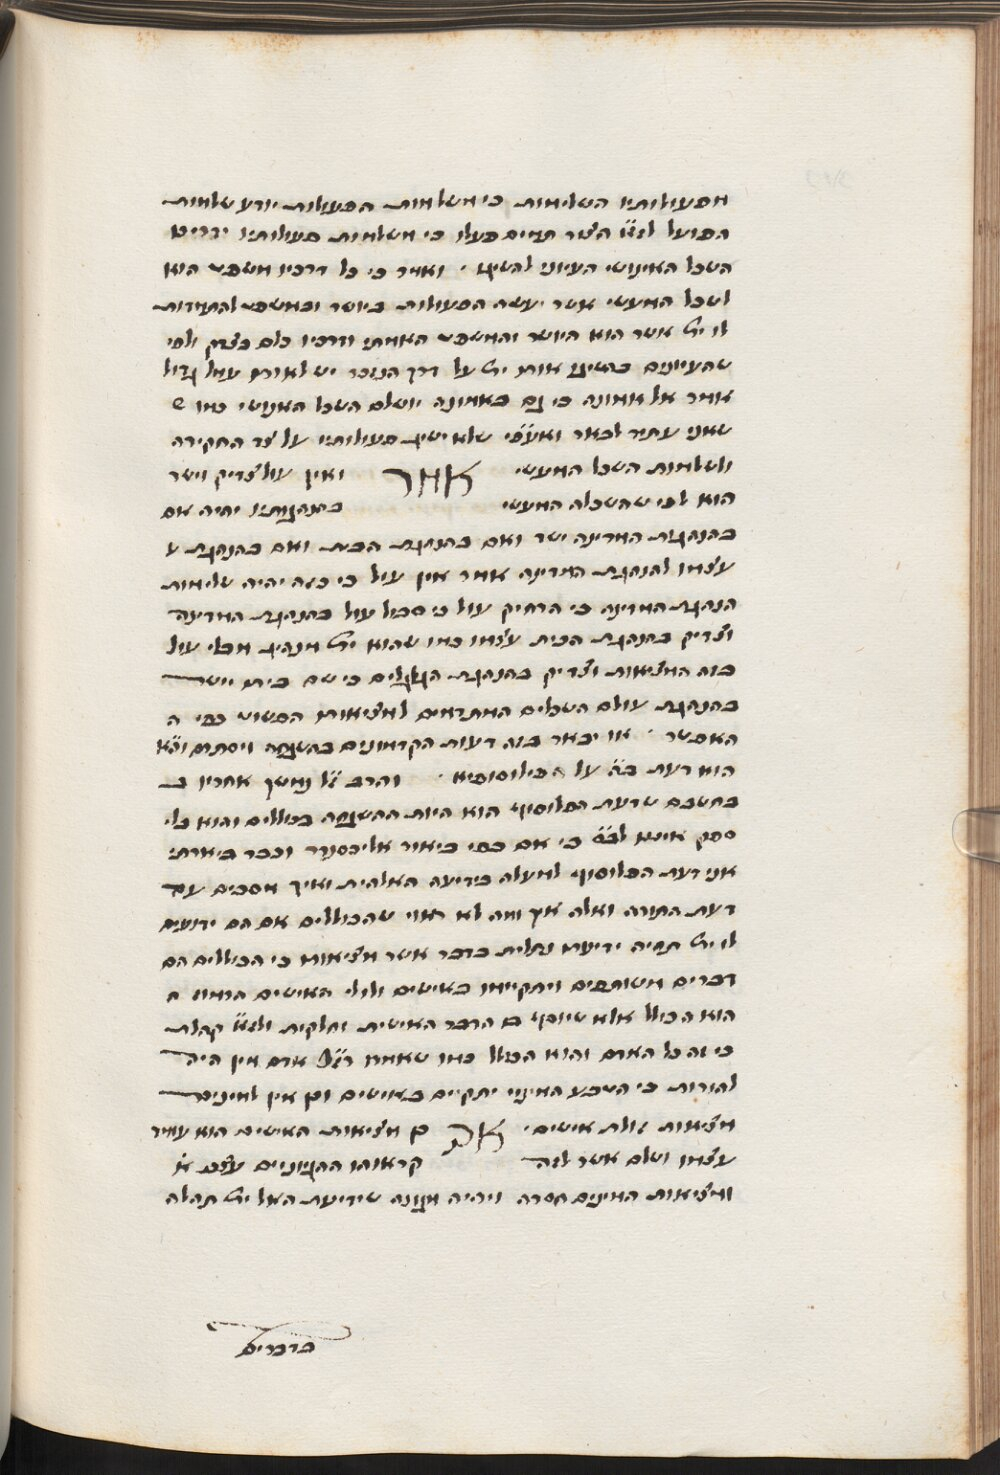 מפעולותיו השלימות כי משלמות הפעולות יודע שלמות
הפועל לז״א הצור תמים פעלו כי משלמות פעולותיו ידריט
השכל האינושי העיוני להשיגו ׳ ואמר כי כל דרכיו משפט הוא
לשכל המעשי אשר יעשה הפעולות ביושר ובמשפט להתמדות
לו ית׳ אשר הוא היושר והמשפט האמתי ודרכיו כלם בצדק ולפי
שהעיונים בהשיגנו אותו ית׳ על דרך הנזכר יש לאות עמל גדול
אמר אל אמונה כי גם באמונה יושלם השכל האנושי כמו ש
שאני עתיד לבאר ואע״פי שלא ישיג פעולותיו על צד החקירה
ולשלמות השכל המעשי אמר ואין עול צדיק וישר
הוא לפי שהשכלה המעשי בהנהגותיו יהיה אם
בהנהגת המדינה ישר ואם בהנהגת הבית ואם בהנהגת ע
עצמו להנהגת המדינה אמר אין עול כי בזה יהיה שלימות
הנהגת המדינה כי הרחיק עול כי סבול עול בהנהגת המדינה
וצדיק בהנהגת הבית עצמו כמו שהוא ית׳ מנהיג מבלי עול
בזה המציאות וצדיק בהנהגת הגלגלים כי שם בית וישר
בהנהגת עולם השכלים המתדמים למציאותו הפשוט כפי ה
האפשר ׳ או יבאר בזה דעות הקדמונים בהשגחה ויסתרם
הוא דעת על הפילוסופיא ׳ והרב ז״ל נמשך אחריו ב
בחשבם שדעת הפלוסוף הוא היות ההשגחה בכוללים והוא בלי
ספק איננו כי אם כפי ביאור אליכסנדר וכבר ביארתי
אני דעת הפלוסוף למעלה בידיעה האלהית ואיך מסכים עם
דעת התורה ואלה אין וזה לא ראוי שהכוללים אם הם ידועים
לו ית׳ תהיה ידיעתו נתלית בדבר אשר מציאותו כי הכוללים הם
דברים משותפים ויתקיימו באישים ולולי האישים הרמוז ה
הוא הכולל אלא שיוסף בו הדבר האישית וחלקית ולז״א קהלת
כי זה כל האדם והוא הכולל כמו שאמרו אדם אין היה
להורות כי הטבע המיניי יתקיים באישים וגם אין למינים
מציאות זולת אישים ׳ אך גם מציאות האישים הוא עומד
עצמו ושלם אשר לזה קראוהו ההגיוניים עצם א׳
ומציאות המינים חסרה ויהיה מגונה שידיעת האל ית׳ תתלה
בדברים